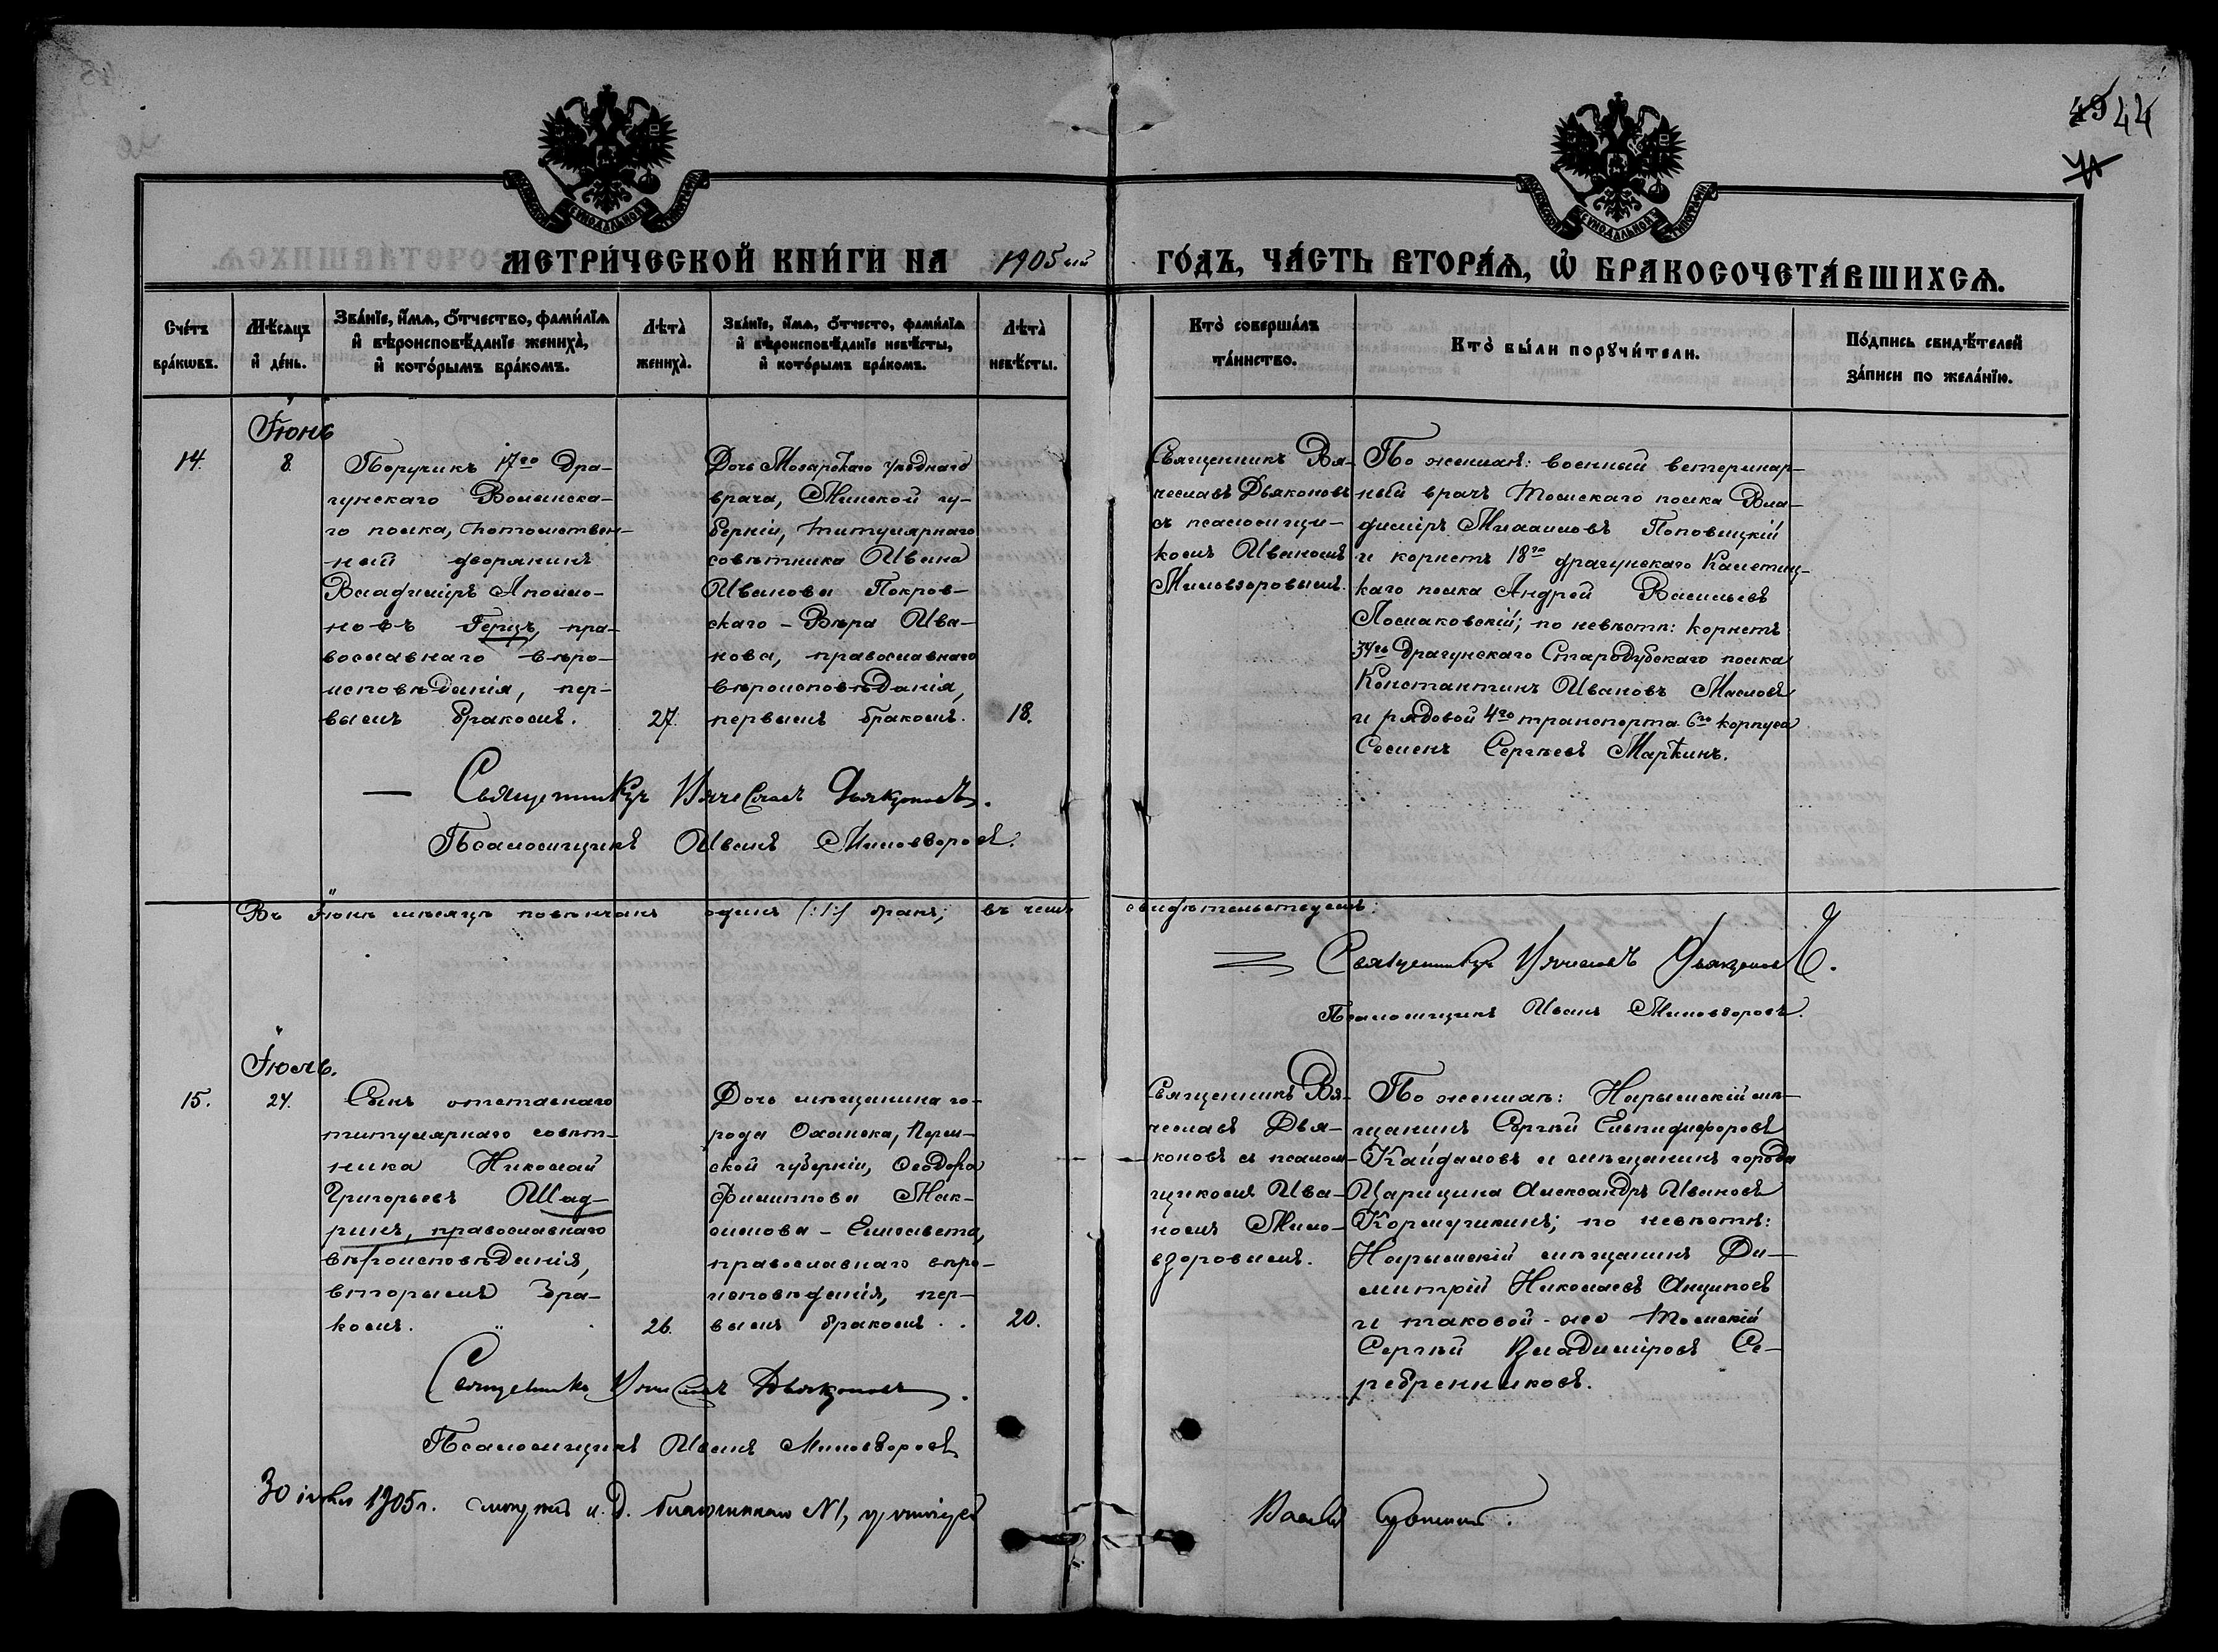 49 44
МЕТРИ́ЧЕСКОЙ КНИ́ГИ НА 1905 ый ГО́ДЪ, ЧА́СТЬ ВТОРА́Ѧ, Ѽ БРАКОСОЧЕТА́ВШИХСѦ.
Сче́тъ бра́кѡвъ.
Мѣ́сѧцъ и҆ де́нь.
Зва́нїе, и҆́мѧ, ѻ҆́тчество, фами́лїѧ и҆ вѣроисповѣ́данїе жениха̀, и҆ кото́рымъ бра́комъ.
Лѣта̀ жениха̀.
Зва́нїе, и҆́мѧ, ѻ҆́тчесто, фами́лїѧ и҆ вѣроисповѣ́данїе невѣ́сты, и҆ кото́рымъ бра́комъ.
Лѣта̀ невѣ́сты.
Кто̀ соверша́лъ та́инство.
Кто̀ бы́ли порꙋчи́тели.
По́дпись свидѣ́телей за́писи по жела́нїю.
Іюнь
14.
8.
Поручикъ 17го Дра-
гунскаго Волынска-
го полка, потомствен-
ный дворянинъ
Владиміръ Аполло-
новъ Герцъ, пра-
вославнаго вѣро-
исповѣданія, пер-
вымъ бракомъ.
27.
Дочь Мозарскаго уѣзднаго
врача, Минской гу-
берніи, титулярнаго
совѣтника Ивана
Иванова Покров-
скаго - Вѣра Ива-
нова, православнаго
вѣроисповѣданія,
первымъ бракомъ.
18.
Священникъ Вя-
чеславъ Дьяконовъ
съ псаломщи-
комъ Иваномъ
Миловзоровымъ.
По женихѣ: военный ветеринар-
ный врачъ Томскаго полка Вла-
диміръ Михаиловъ Поповицкій
и корнетъ 18го драгунскаго Клястиц-
каго полка Андрей Васильевъ
Посмаковскій; по невѣстѣ: корнетъ
34го Драгунскаго Стародубскаго полка
Константинъ Ивановъ Масловъ
и рядовой 4го транспорта 6го корпуса
Семенъ Сергѣевъ Маркинъ.
Священникъ Вячеславъ Дьяконовъ.
Псаломщикъ Иванъ Миловзоровъ.
Въ Іюнѣ мѣсяцѣ повѣнчанъ одинъ (:1:) бракъ; въ чемъ свидѣтельствуемъ:
Священникъ Вячеславъ Дьяконовъ.
Псаломщикъ Иванъ Миловзоровъ.
Іюль.
15.
24.
Сынъ отставнаго
титулярнаго совѣт-
ника Николай
Григорьевъ Шад-
ринъ, православнаго
вѣроисповѣданія,
вторымъ бра-
комъ.
26.
Дочь мѣщанина го-
рода Оханска, Перм-
ской губерніи, Ѳеодора
Филиппова Мак-
симова - Елисавета,
православнаго вѣро-
исповѣданія, пер-
вымъ бракомъ.
20.
Священникъ Вя-
чеславъ Дья-
коновъ съ псалом-
щикомъ Ива-
номъ Мило-
взоровымъ.
По женихѣ: Нарымскій мѣ-
щанинъ Сергѣй Елпидифоровъ
Кайдаловъ и мѣщанинъ города
Царицина Александръ Ивановъ
Кормучкинъ; по невѣстѣ:
Нарымскій мѣщанинъ Ди-
митрій Николаевъ Анциповъ
и таковой-же Томскій
Сергѣй Владиміровъ Се-
ребренниковъ.
Священникъ Вячеславъ Дьяконовъ.
Псаломщикъ Иванъ Миловзоровъ
30 іюля 1905 г. и. д. благочиннаго №1,